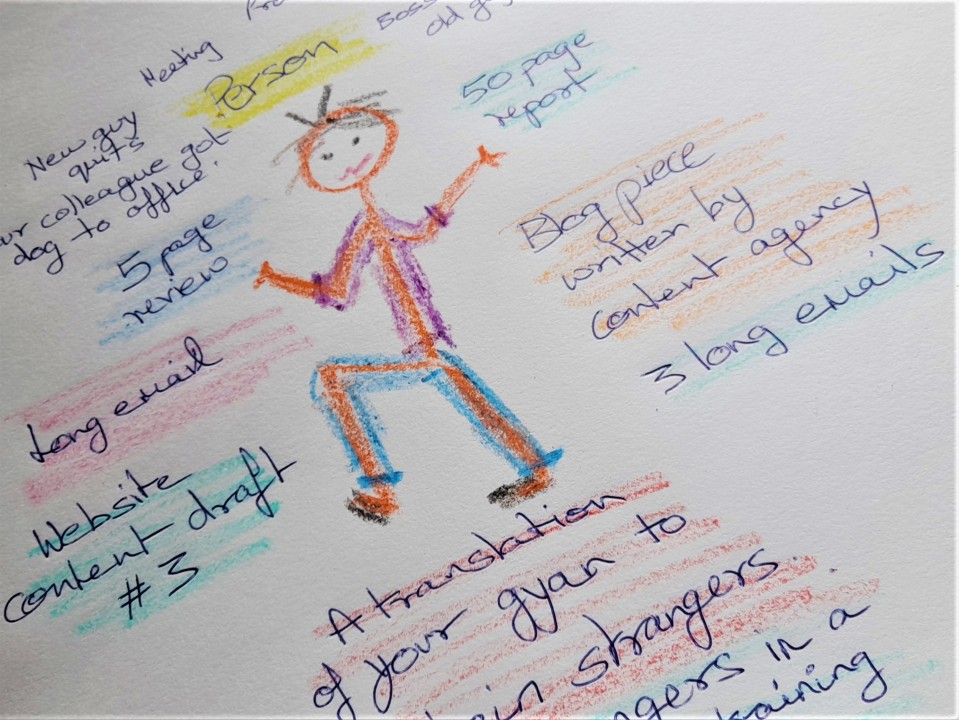 Meeting
Person
Boss
old
50 page
report
New guy
quits
colleague got
dog to office!
5 page
review
Blog piece
written by
content agency
3 long emails
Long email
Website
content draft
#3
A translation
of your gyan to
strangers
in a